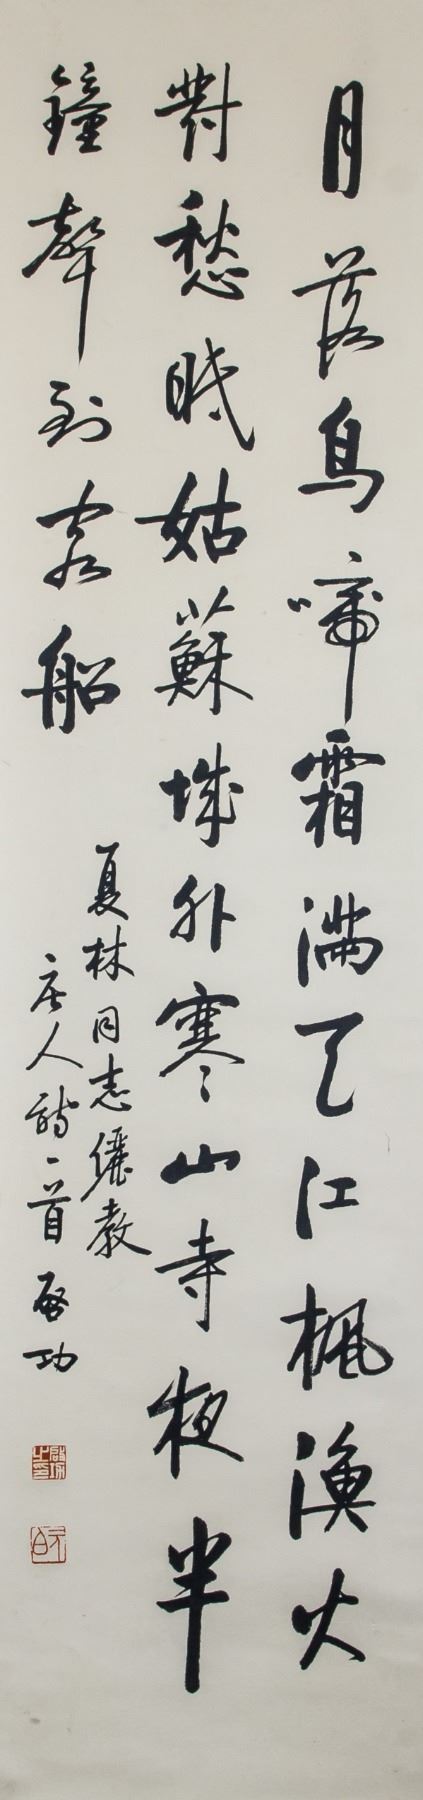 月落烏啼霜滿天江楓漁火
對愁眠姑蘇城外寒山寺夜半
鐘聲到客船
夏林同志儷教
唐人詩一首 啓功
啓功之印
元白